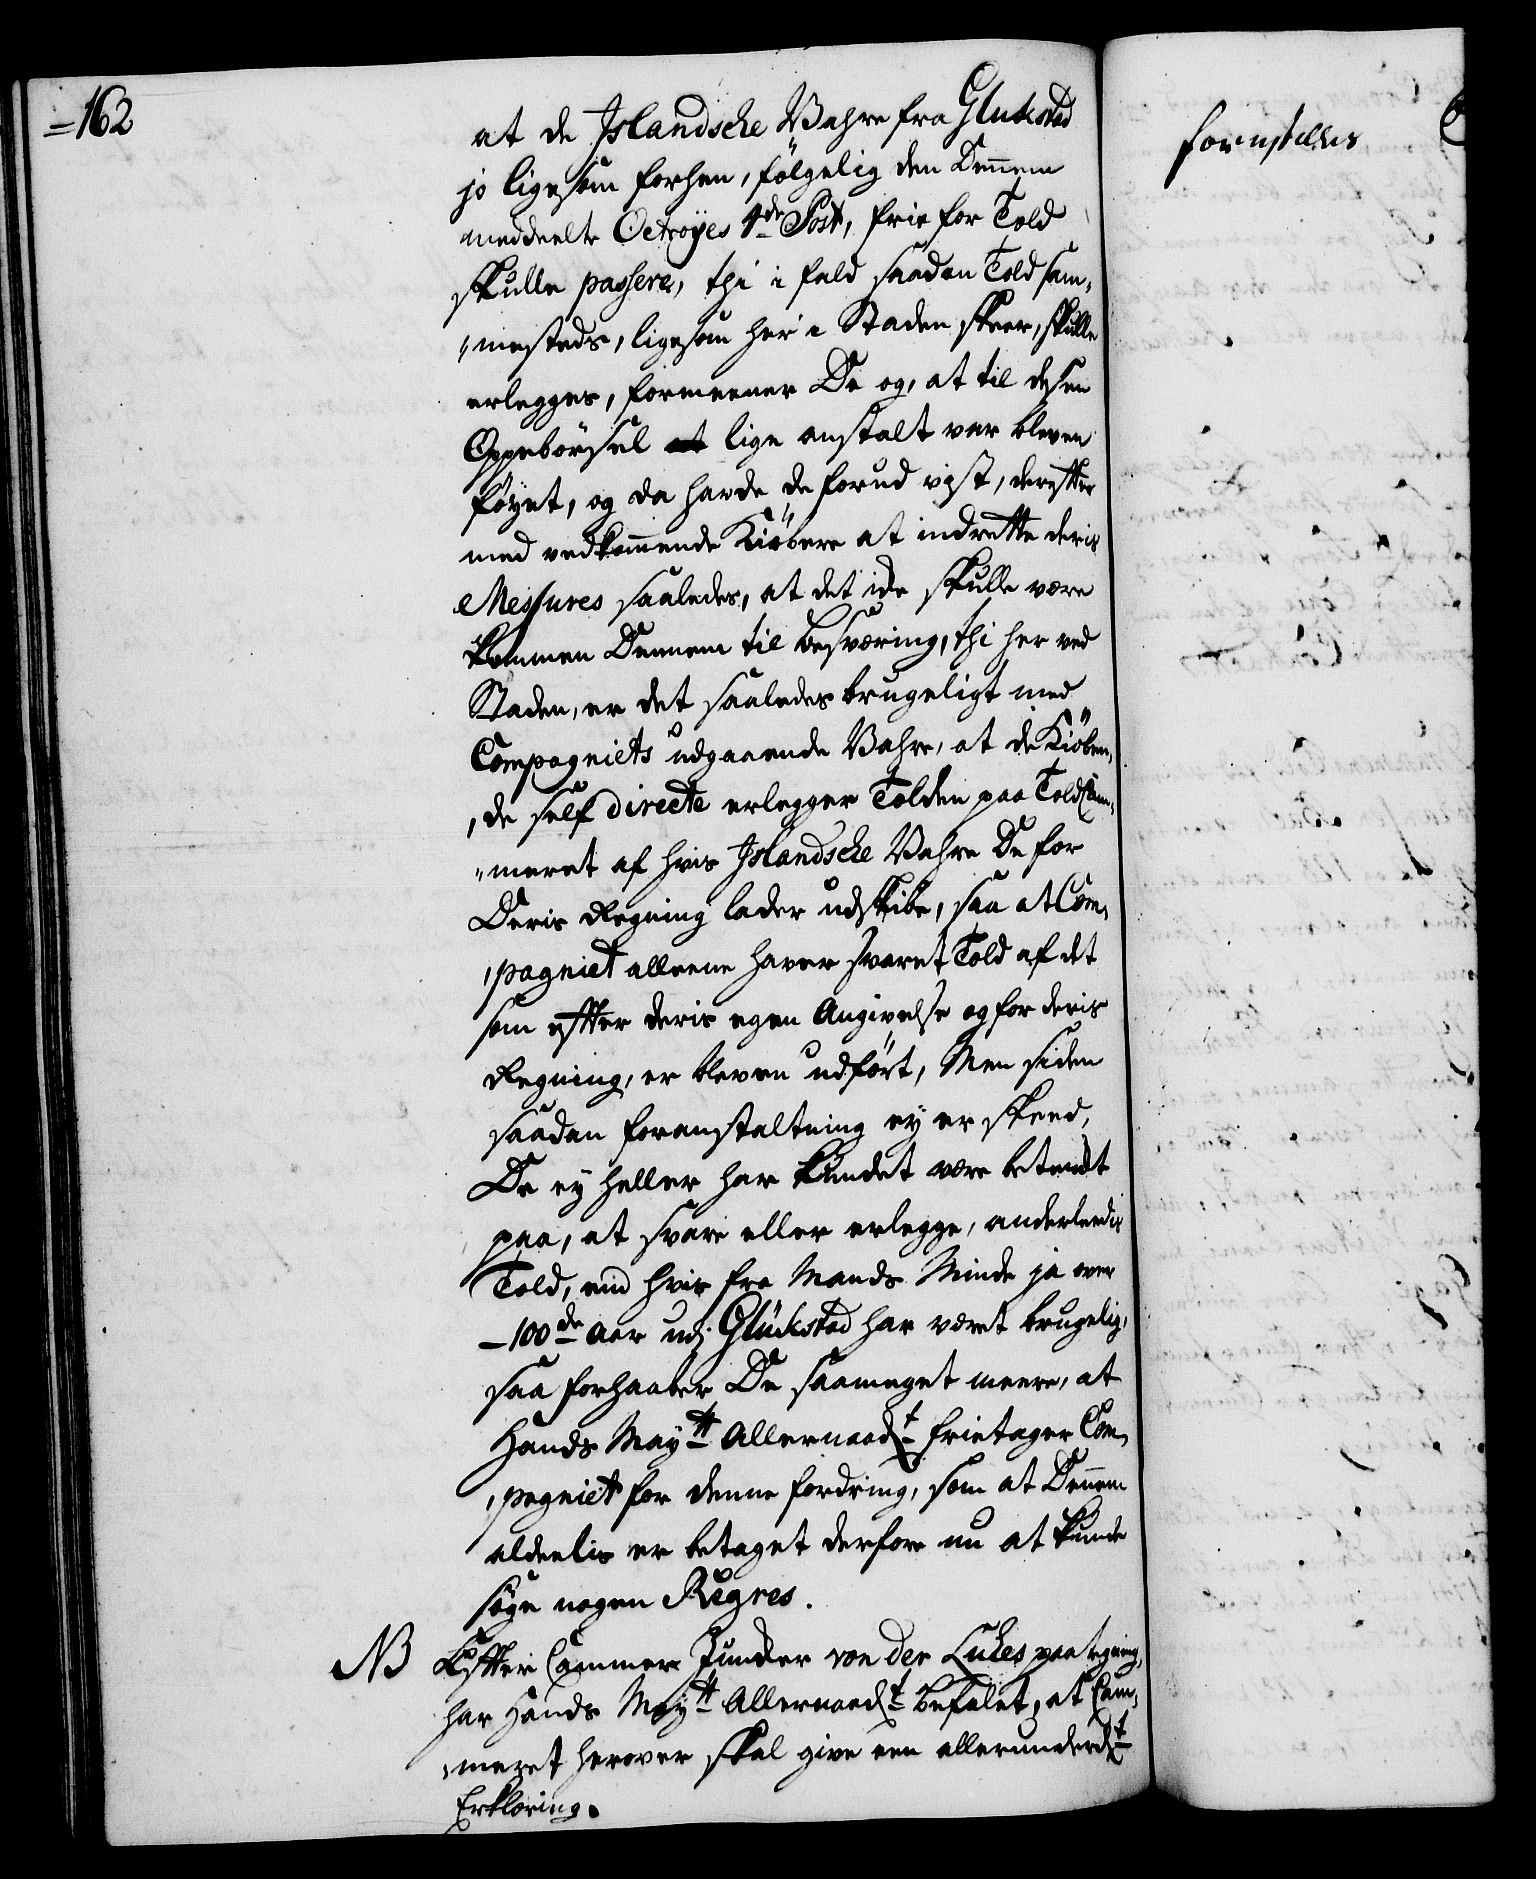 =162
at de Jslandsche Vahre fra Glukstad
jo ligesom forhen, fölgelig den Dennem
meddeelte Octroyes 4de Post, frie for Told
skulle passere, thi i fald saadan Told sam„
„mesteds, ligesom her i Staden skeer, skulle
erlegges, formeener De og, at til desen
Oppebörsel lige anstalt var bleven
föyet, og da hafde de forud vist, derefter
med vedkommende Kiöbere at indrette deris
Messures saaledes, at det icke skulle være
kommen Dennem til besværing, thi her ved
Staden, er det saaledes brugeligt med
Compagniets udgaaende Vahre, at de Kiöben„
„de self directe erlegger Tolden paa Toldkam„
„meret af hvis Jslandsche Vahre De for
Deris Regning lader udskibe, saa at Com„
„pagniet alleene haver svaret Told af det
som efter deris egen Angivelse og for deris
Regning, er bleven udfört, Men siden
saadan foranstaltning ey er skeed,
De ey heller har kundet være betænkt
paa, at svare eller erlegge, anderleedis
Told, end hvis fra Mands Minde ja over
100de Aar udj Glückstad har været brugelig,
saa forhaaber De saameget meere, at
Hands Maytt Allernaadt frietager Com„
„pagniet for denne fordring, som at Dennem
aldeelis er betaget derfore nu at kunde
söge nogen Regres.
NB Efter Cammer Juncker von der Lühes paategning,
har Hands Maytt Allernaadt befalet, at Cam„
„meret herover skal give een allerunderdt
Erklæring.
forestilles